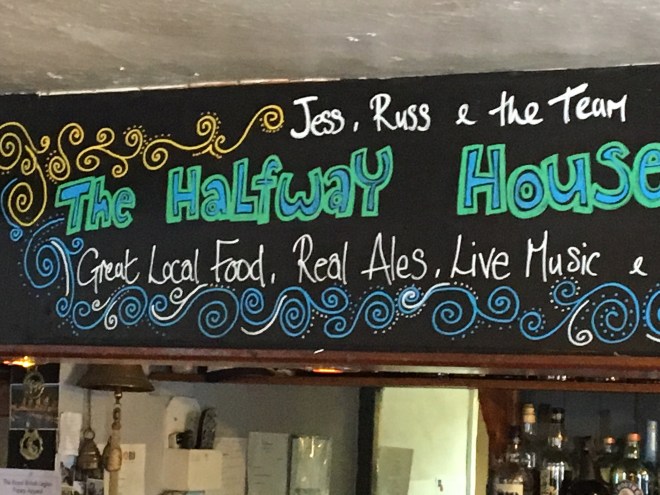 Jess, Russ & the Team
The Halfway House
Great Local Food, Real Ales, Live Music &